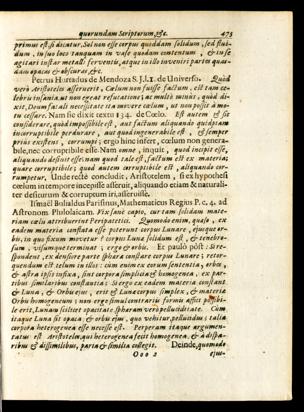 quorundam Scriptorum, &c. 475
primus est si dicatur, Sol non esse corpus quoddam solidum, sed flui-
dum, in suo loco tanquam in vase quodam contentum, & in se
agitari instar metalli ferventis, atque in illo inveniri partes quas-
dam opacas & obscuras, &c.
Petrus Hurtadus de Mendoza S.J. l.1. de Universo. Quod
verò Aristoteles asseruerit, Cœlum non fuisse factum, est tam ce-
lebris insania, ut non egeat refutatione: ac multò minùs, quod di-
xit, Deum fatali necessitate ita movere cœlum, ut non possit à mo-
tu cessare. Nam sic dixit textu 134. de Cœlo. Est autem & sic
considerare, quòd impossibile est, aut factum aliquando quidpiam
incorruptibile perdurare, aut quod ingenerabile est, & semper
priùs existens, corrumpi; ergo hinc infert, cœlum non genera-
bile, nec corruptibile esse. Nam omne, inquit, quod incipit esse,
aliquando desinit esse: nam quod tale est, factum est ex materia;
quare corruptibile: quod autem corruptibile est, aliquando cor-
rumpetur, Unde rectè concludit, Aristotelem, si ex hypothesi
cœlum in tempore incepisse asseruit, aliquando etiam & naturali-
ter desciturum & corruptum iri, asseruisse.
Ismaël Bulialdus Parisinus, Mathematicus Regius P. c. 4. ad
Astronom Philolaicam. Fixi sane capio, curtam solidam mate-
riam cœlis attribuerint Peripatetici. Quomodo enim, quæso, ex
eadem materia constata esse poterunt corpus Lunare, ejusque or-
bis, in quo fixum movetur? corpus Luna solidum est, & tenebro-
sum, visumque terminat; ergo & orbis. Et paulò pòst: a re-
spondent, ex densiore parte sphæra constare corpus Lunare; retor-
quendum est telum in illos: cùm enim ex eorum sententia, orbis,
& astra ipsis infixa, sint corpora simplicia & homogenea, ex par-
tibus similaribus constantia: Si ergo ex eadem materia constant,
& Luna, & Orbis ejus, erit & Lunæ corpus simplex, & materia
Orbis homogeneum: non ergo simul contrariis formis affici possibi-
le erit, Lunam scilicet opacitate, spharam verò pelluciditate. Cùm
itaque Luna sit opaca, & orbis ejus, quo vehitur, pellucidus; talia
corpora heterogenea esse necesse est. Perperam itaque argumen-
tatus est Aristoteles, qui heterogenea fecit homogenea, & à dispa-
ribus & dissimilibus, paria & similia collegit. Deinde, quomodo
Ooo 2 ejus-